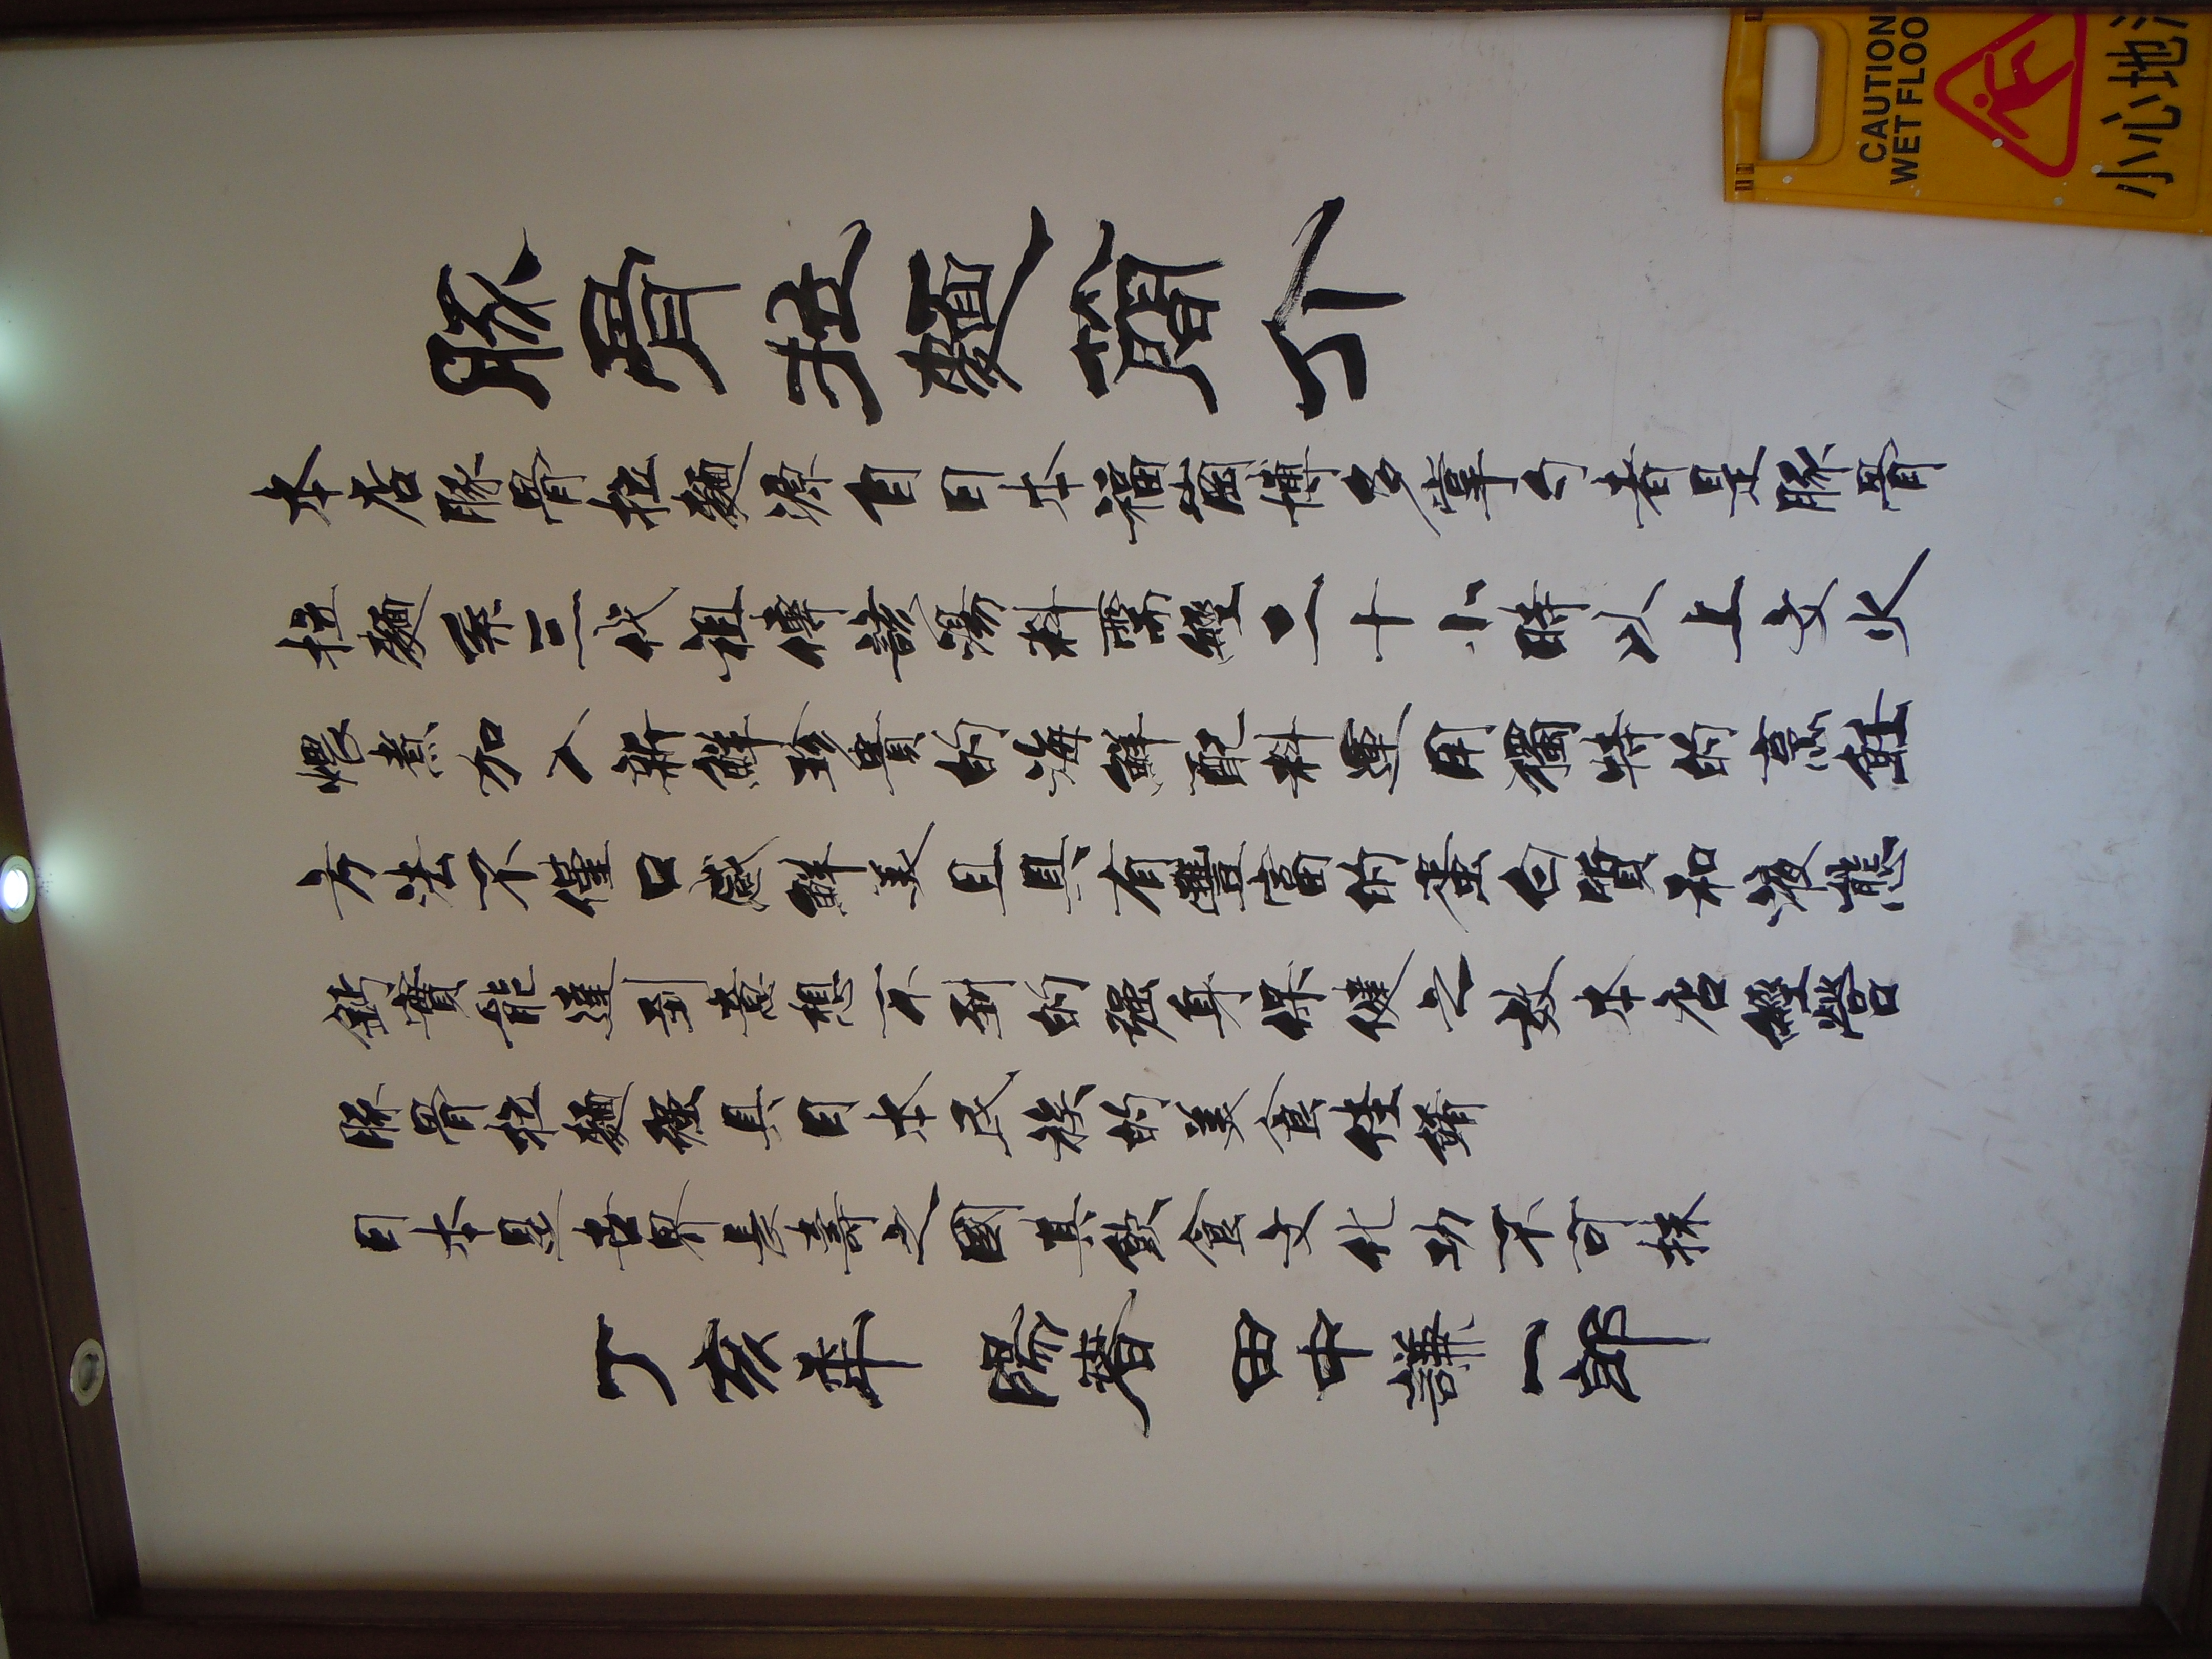 豚骨拉麵簡介
本店豚骨拉麵源自日本福崗博多掌勺者是豚骨
拉麵系三代祖傳該湯料需經二十小時以上文火
煨煮加入新鮮珍貴的海鮮配料運用獨特的烹飪
方法不僅口感鮮美且具有豐富的蛋白質和液態
鈣實能達到意想不到的强身保健之效本店經營
豚骨拉麵極具日本民族的美食佳餚
日本是世界長壽之國其飲食文化功不可抹
丁亥年 陽春 田中謙一郎
CAUTION
WET FLOO
小心地